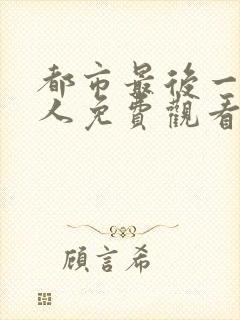 都市最後一
人免費觀看
顧言希